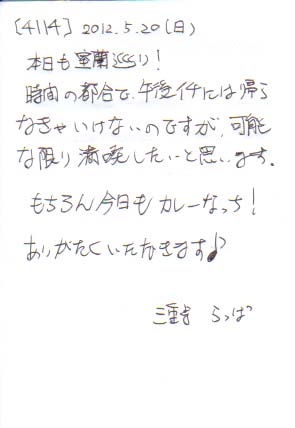 [4114] 2012.5.20(日)
本日も室蘭巡り!
時間の都合で、午後イチには帰ら
なきゃいけないのですが、可能
な限り満喫したいと思います。
もちろん今日もカレーなっち!
ありがたくいただきます♪
三重 らっぱ